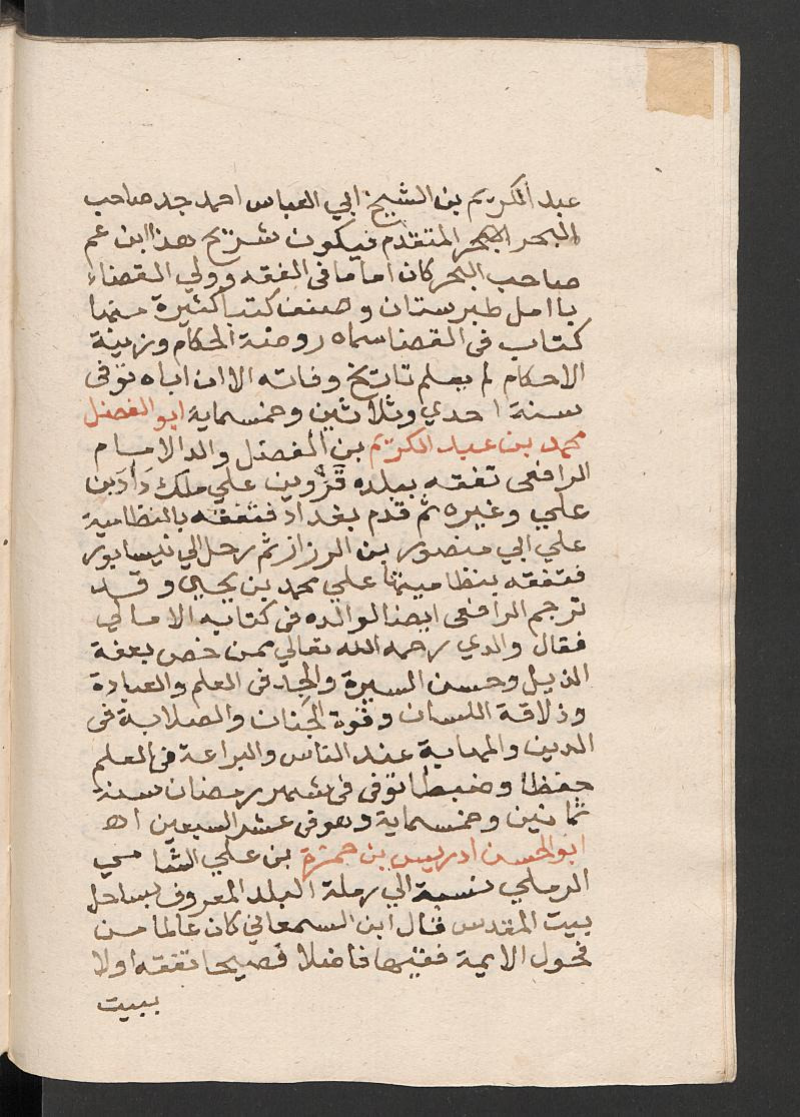 عبد الكريم بن الشيخ ابي العباس احمد جد صاحب
البحر المتقدم فيكون شريح هذا ابن عم
صاحب البحر كان اماما فى الفقه وولي القضاء
باامل طبرستان وصنف كتبا كثيرة منها
كتاب فى القضا سماه روضة الحكام وزينة
الاحكام لم يعلم تاريخ وفاته الا ان اباه توفى
سنة احدي وثلاثين وخمسماية ابو الفضل
محمد بن عبد الكريم بن الفضل والد الامام
الرافعى تفقه ببلده قزوين علي ملك دَادَ بن
علي وغيره ثم قدم بغداد فتفقه بالنظامية
علي ابي منصور بن الرزاز ثم رحل الي نيسابور
فتفقه بنظاميتها علي محمد بن يحيي وقد
ترجم الرافعى ايضا لوالده فى كتابه الامالي
فقال والدي رحمه الله تعالي ممن خص بعفة
الذيل وحسن السيرة والجد فى العلم والعبادة
وذلاقة اللسان وقوة الجَنان والصلابة فى
الدين والمهابة عند الناس والبراعة فى العلم
حفظا وضبطا توفى فى شهر رمضان سنة
ثمانين وخمسماية وهو فى عشر السبعين اه
ابو الحسن ادريس بن حمزة بن علي الشامي
الرملي نسبة الي رملة البلد المعروف بساحل
بيت المقدس قال ابن السمعاني كان عالما من
فحول الايمة فقيها فاضلا فصيحا تفقه اولا
ببيت